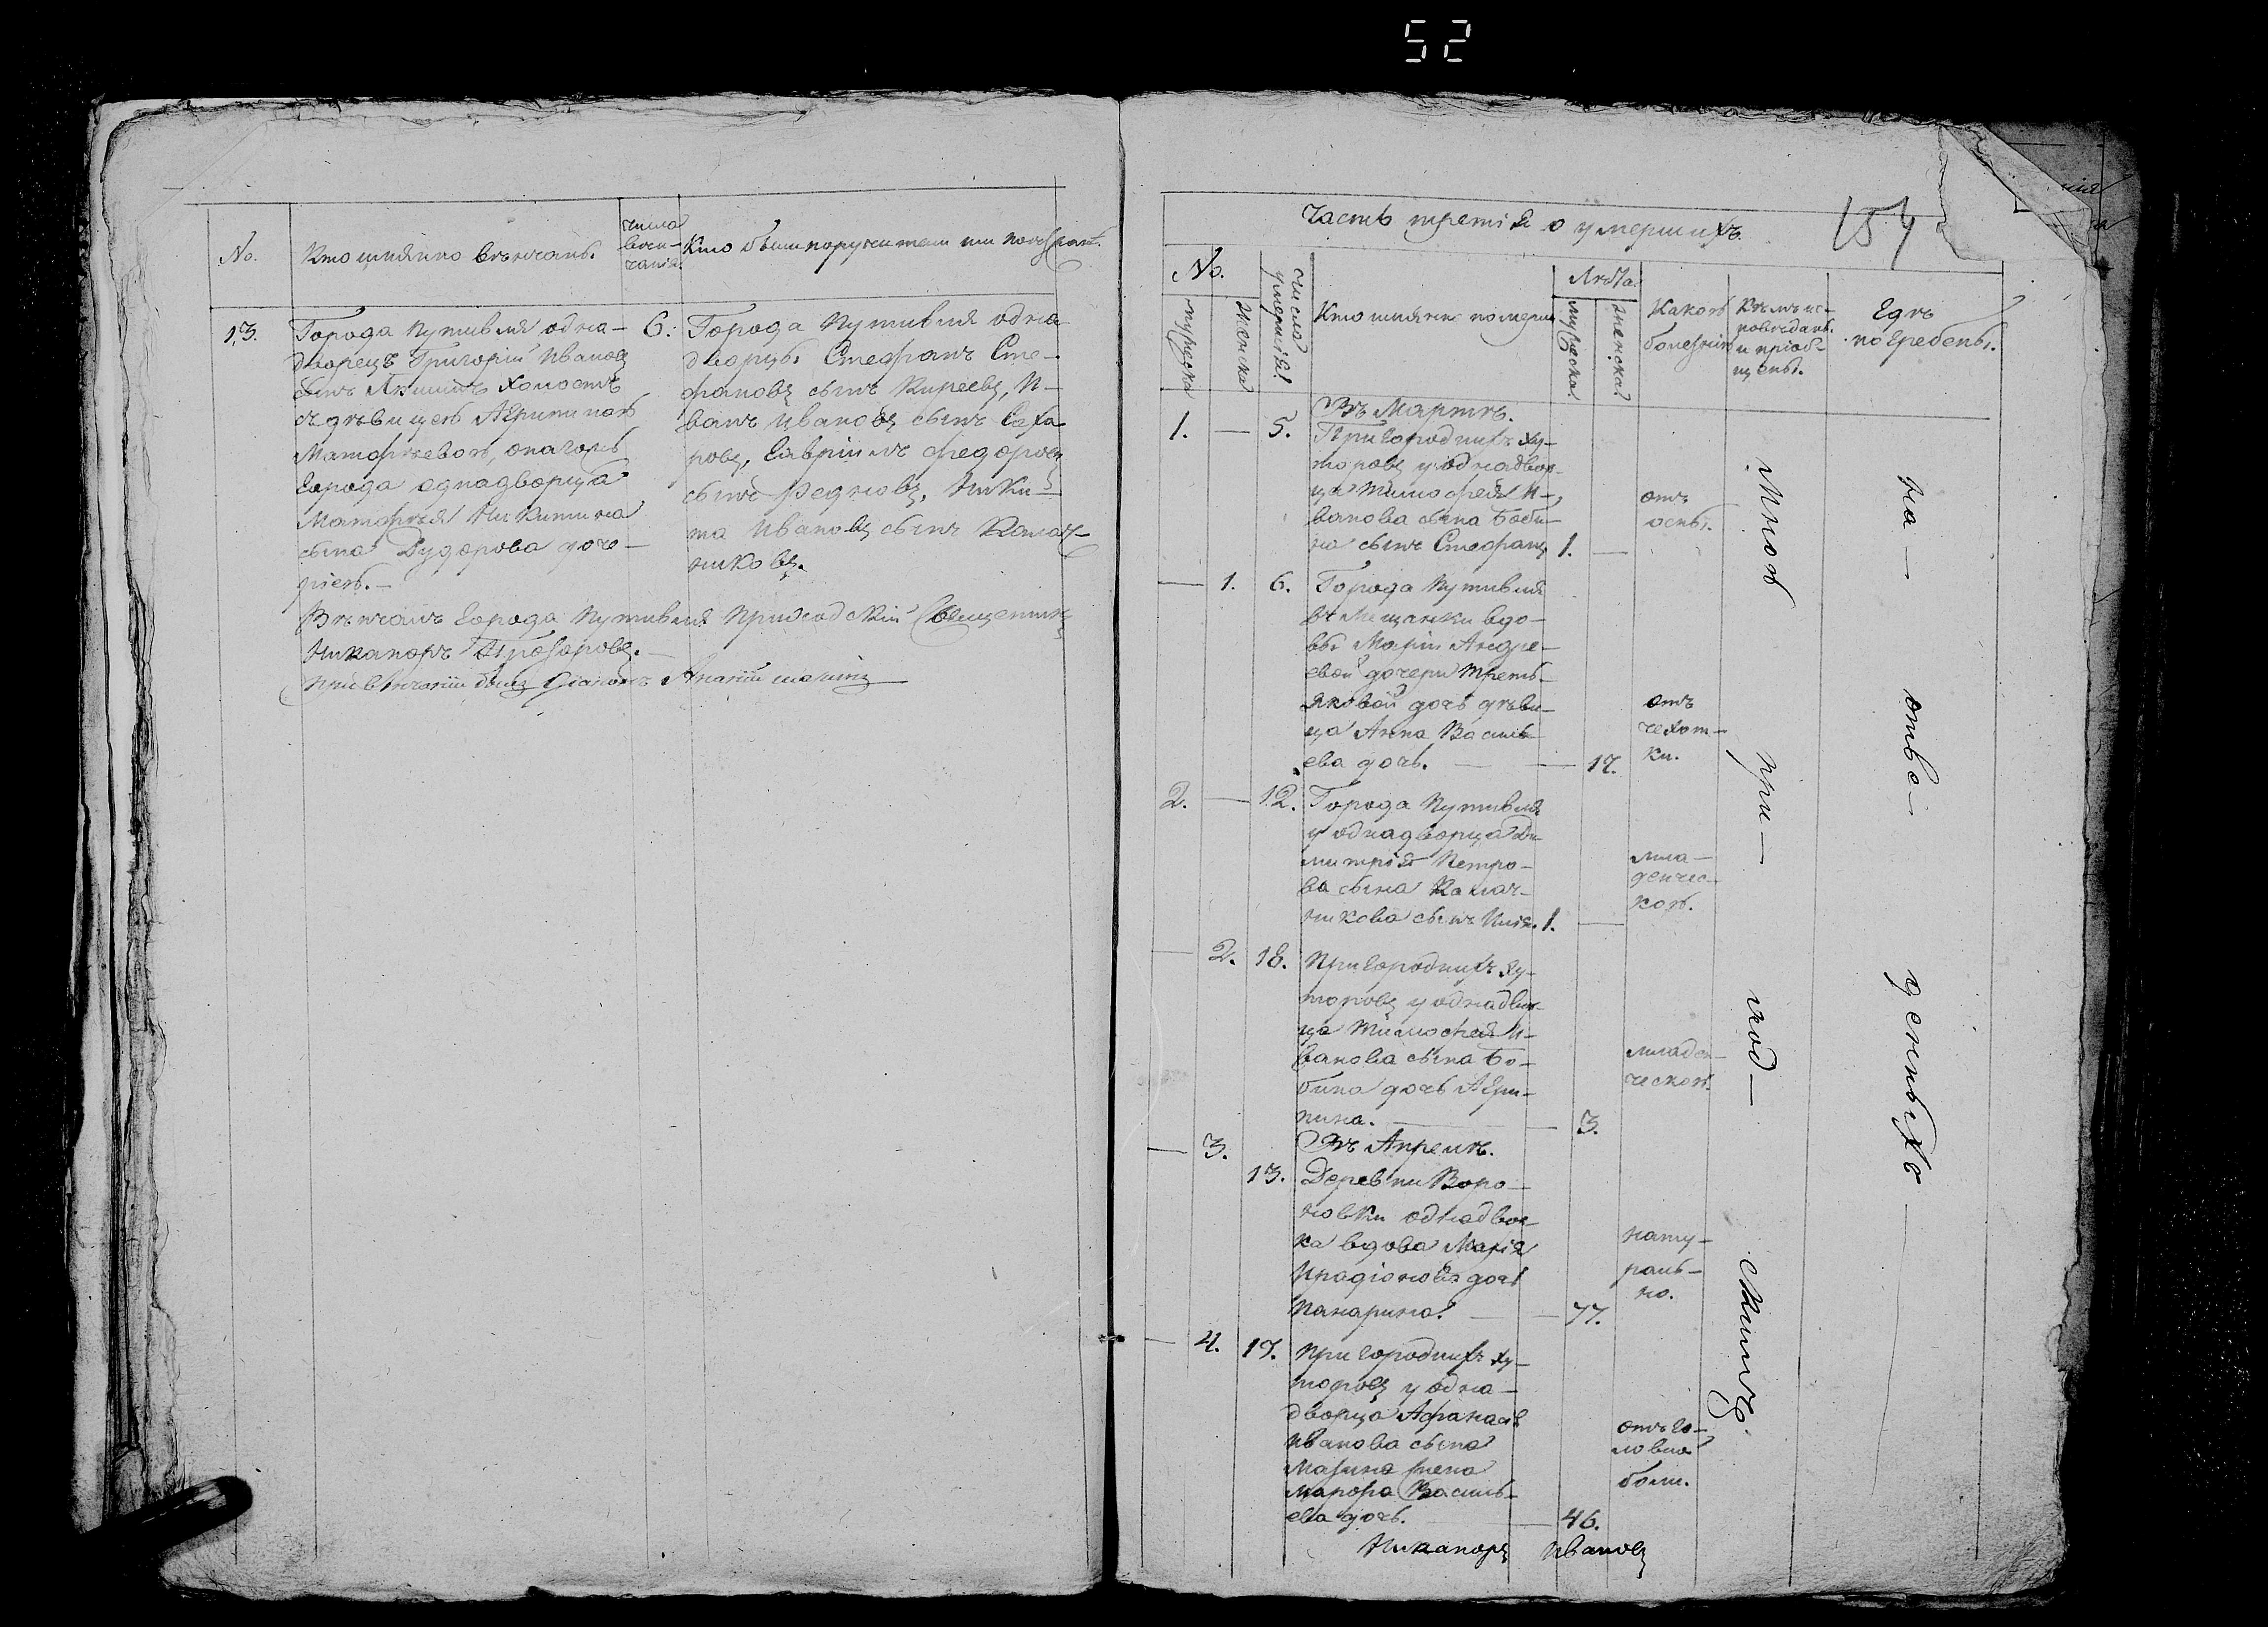 52
No.
Кто имянно вѣнчанъ.
числа
вѣн-
чанія.
Кто были поручители или
13.
Города Путивля одна-
дворецъ Григорій Ивановъ
сынъ холостъ
съ дѣвицею Агрипиною
Матфѣевою, онагожъ
города однадворца
Матфѣя Никитина
сына Дудорова доче-
рію.-
6.
Города Путивля одна-
дворцы Стефанъ Сте-
фановъ сынъ Киреевъ, И-
ванъ Ивановъ сынъ Саха-
ровъ, Гавріилъ Федоровъ
сынъ Редковъ, Ники-
та Ивановъ сынъ Калач-
никовъ.
Вѣнчалъ города Путивля Приходскій Священникъ
Никаноръ
При вѣнчаніи былъ Діаконъ Ананій
Часть третія о умершихъ.
157
No.
мужеска
женска
число
умертвія
Кто имянно померли
Лѣта.
мужеска
женская
Какою
болезнію
Кѣмъ ис-
повѣданы
и пріоб-
щены.
Гдѣ
погребены.
Въ Мартѣ.
1. — 5. Пригороднихъ ху-
торовъ у однадвор-
ца Тимофея И-
ванова сына Боби-
на сынъ Стефанъ 1. —
отъ
оспы.
— 1. 6. Города Путивля
Мещанки вдо-
вы Маріи Андре-
евой дочери Треть-
яковой дочь дѣви-
ца Анна Василь-
ева дочь. — — 17.
отъ
чехот-
ки.
2. — 12. Города Путивля
у однадворца Ди-
митрія Петро-
ва сына Калач-
никова сынъ Илія. 1. —
мла-
денчес-
кою.
— 2. 18. Пригороднихъ ху-
торовъ у однадвор-
ца Тимофея И-
ванова сына Бо-
бина дочь Агри-
пина. — — 3.
младен-
ческою.
— 3.
Въ Апрелѣ.
13. Деревни Воро-
новки однадвор-
ка вдова Марія
Ирадіонова дочь
Панарина. — — 77.
нату-
раль-
но.
— 4. 17. Пригороднихъ ху-
торовъ у одна-
дворца Афанасія
Иванова сына
Мазина жена
Василь-
ева дочь. — 46.
отъ го-
ловной
боли.
Мною при- ход- скимъ.
на- отве- денныхъ
Никаноръ Ивановъ